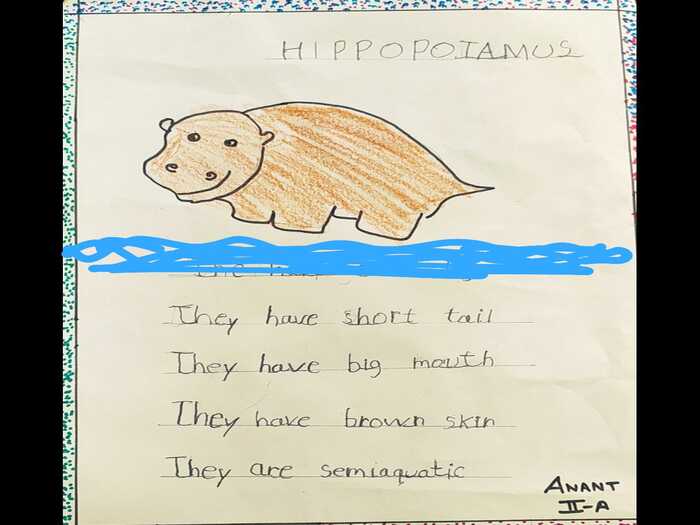 HIPPOPOTAMUS
They have short tail
They have big mouth
They have brown skin
They are semiaquatic
ANANT
II-A